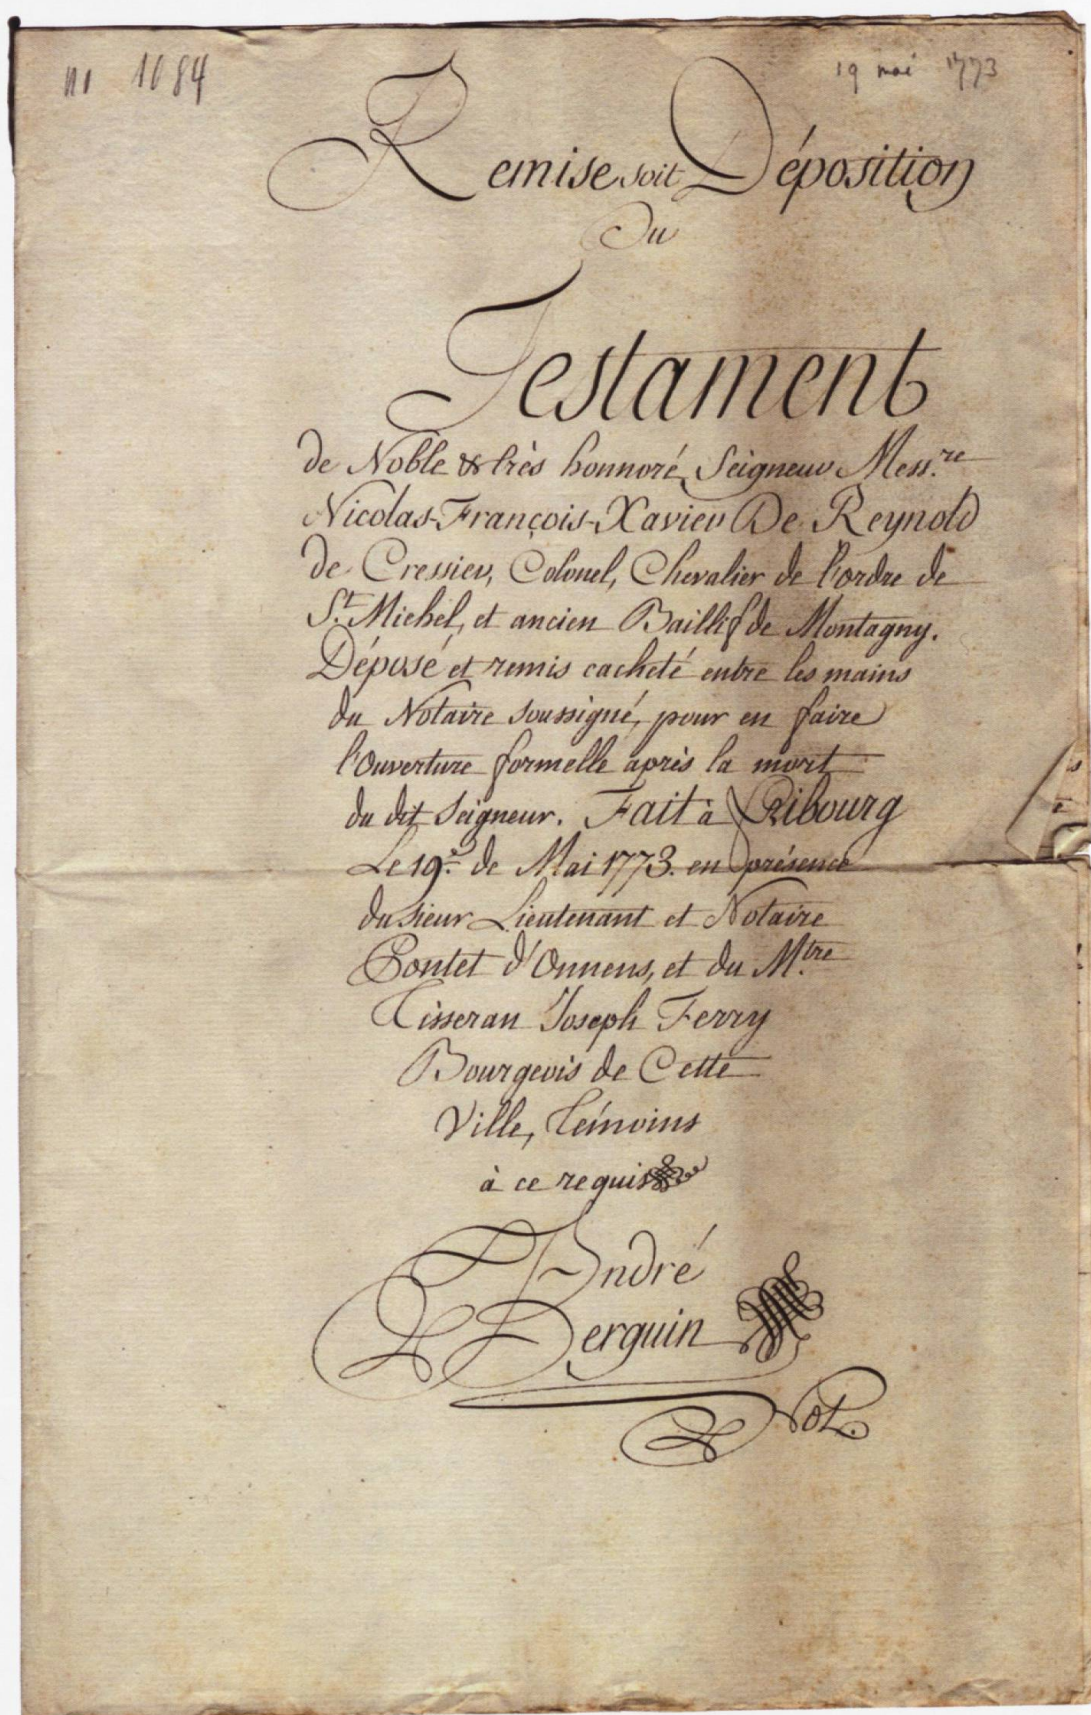 n1 1084
19 mai 1773
Remise soit Déposition
Du
Testament
de Noble & très honnoré Seigneur Mess.re
Nicolas-François-Xavier De Reynold
de Cressier, Colonel, Chevalier de l'ordre de
S.t Michel, et ancien Baillif de Montagny.
Déposé et remis cacheté entre les mains
du Notaire soussigné, pour en faire
l'Ouverture formelle après la mort
du dit Seigneur. Fait à Fribourg
Le 19.e de Mai 1773. en présence
du sieur Lieutenant et Notaire
Gontet d'Onnens, et du M.tre
Tisseran Joseph Ferry
Bourgeois de Cette
Ville, Témoins
à ce requis
André
Derguin
Not.